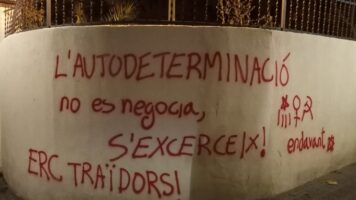 L'AUTODETERMINACIÓ
no es negocia,
S'EXCERCEIX!
endavant
ERC TRAÏDORS!